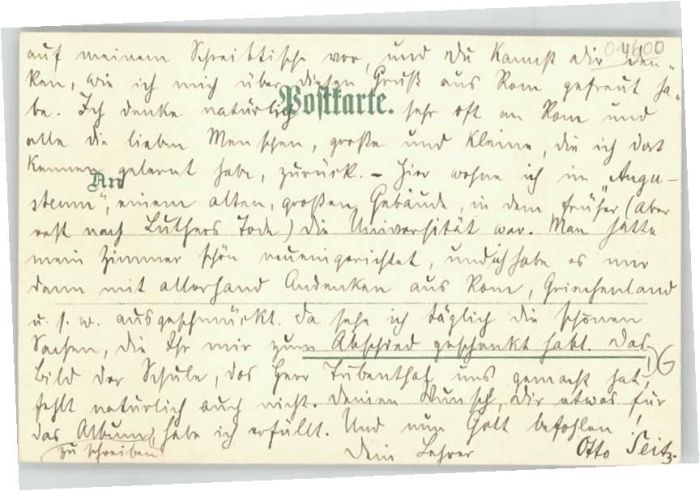 04600
auf meinem Schreibtisch vor, und Du kannst dir den-
ken, wie ich mich über diesen Gruß aus Rom gefreut ha-
be. Ich denke natürlich sehr oft an Rom und
Postkarte.
alle die lieben Menschen, große und kleine, die ich dort
kennen gelernt habe, zurück. – Hier wohne ich im „Augu-
An
steum", einem alten, großen Gebäude, in dem früher (aber
erst nach Luthers Tode) die Universität war. Man hatte
mein Zimmer schön neu eingerichtet, und ich habe es nur
dann mit allerhand Andenken aus Rom, Griechenland
u. s. w. ausgeschmückt. Da sehe ich täglich die schönen
Sachen, die Ihr mir zum Abschied geschenkt habt. Das
Bild der Schule, das Herr Tubenthal uns gemacht hat,
fehlt natürlich auch nicht. Deinen Wunsch, Dir etwas für
das Album zu schreiben, habe ich erfüllt. Und nun Gott befohlen!
Dein Lehrer Otto Seitz.